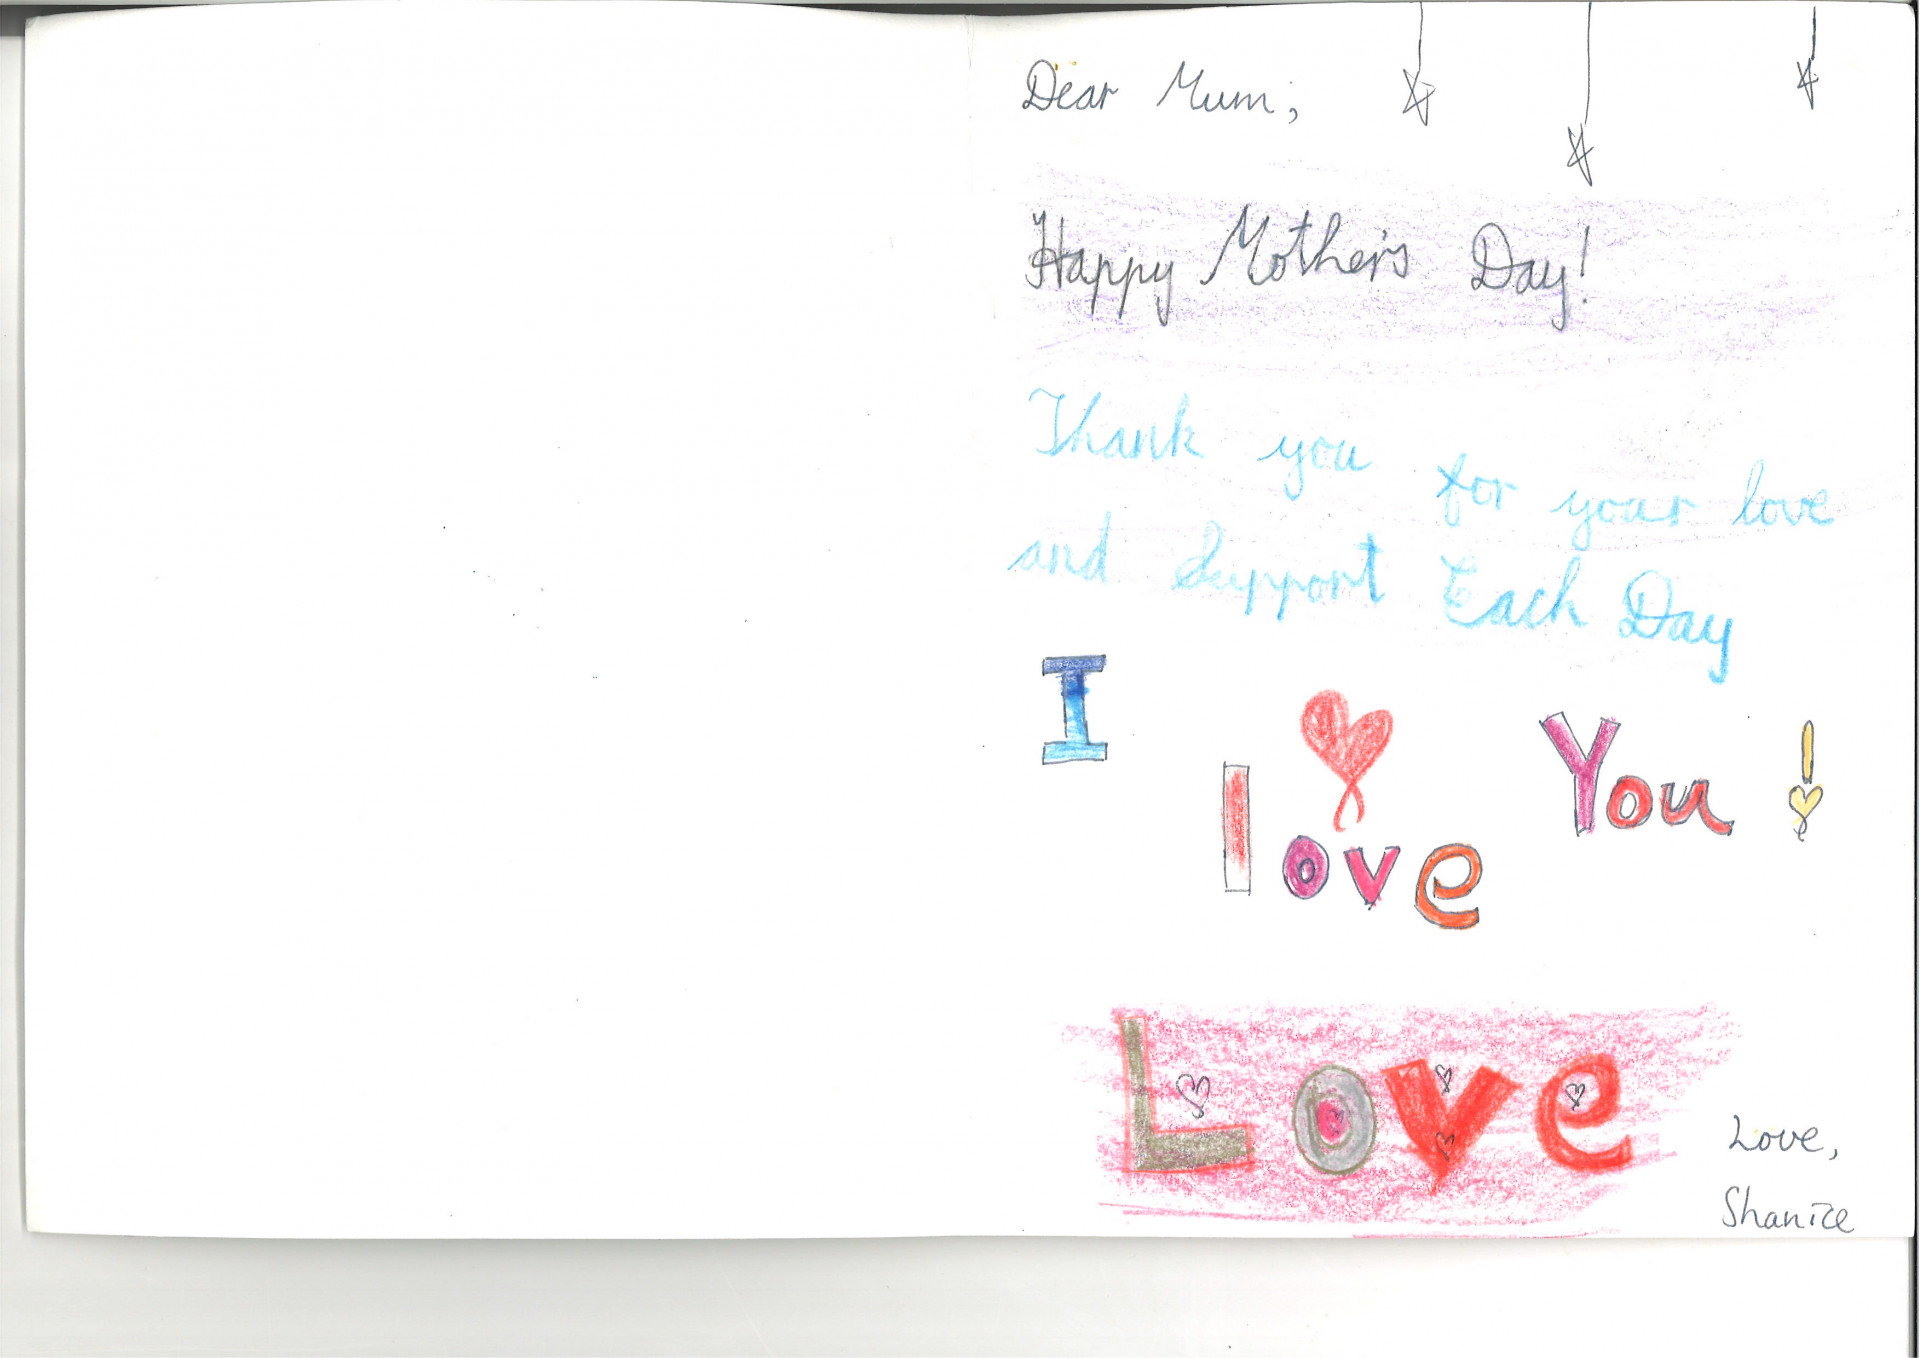 Dear Mum,
Happy Mother's Day!
Thank you for your love
and Support Each Day
I love You!
Love
Love,
Shanice